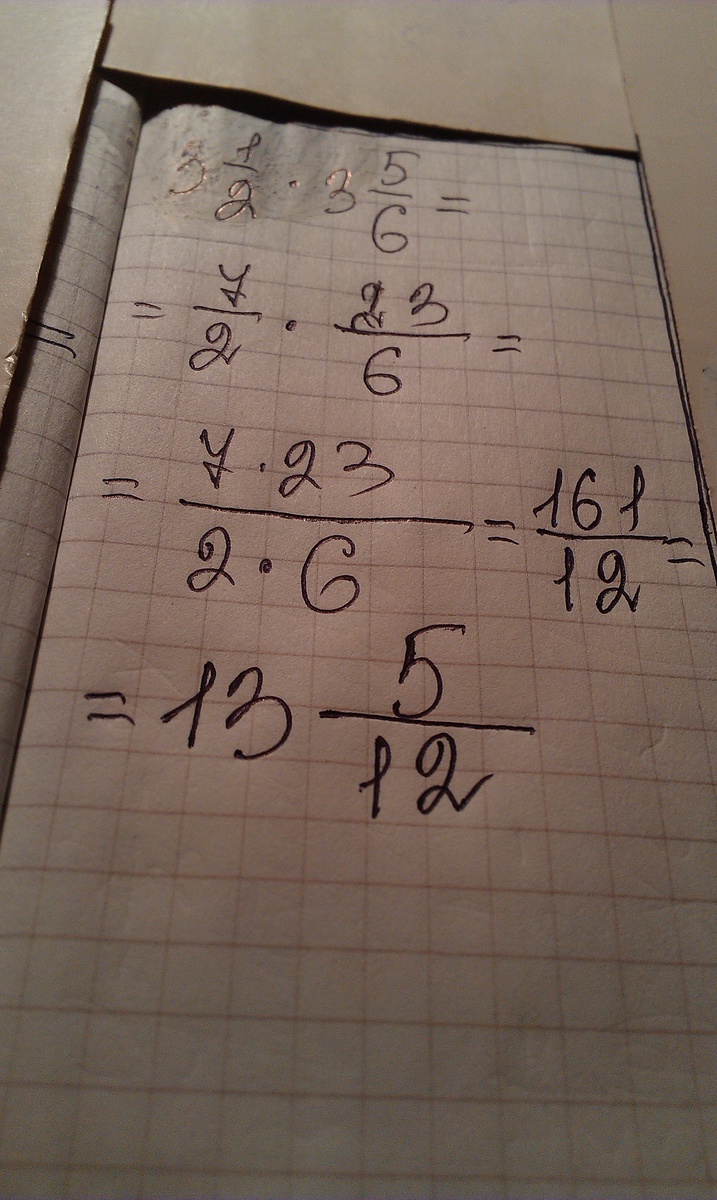 3 1/2 · 3 5/6 =
= 7/2 · 23/6 =
= 7·23/2·6 = 161/12 =
= 13 5/12